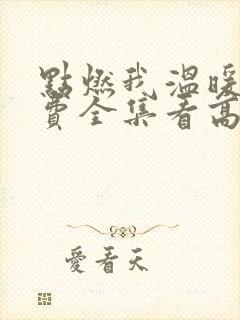 點燃我溫暖
費全集看高
愛看天